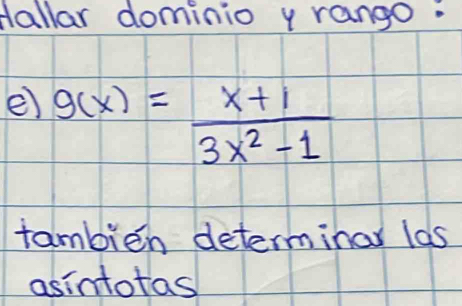 Hallar dominio y rango:
e) g(x) = x+1
3x² - 1
tambien determinar las
asíntotas